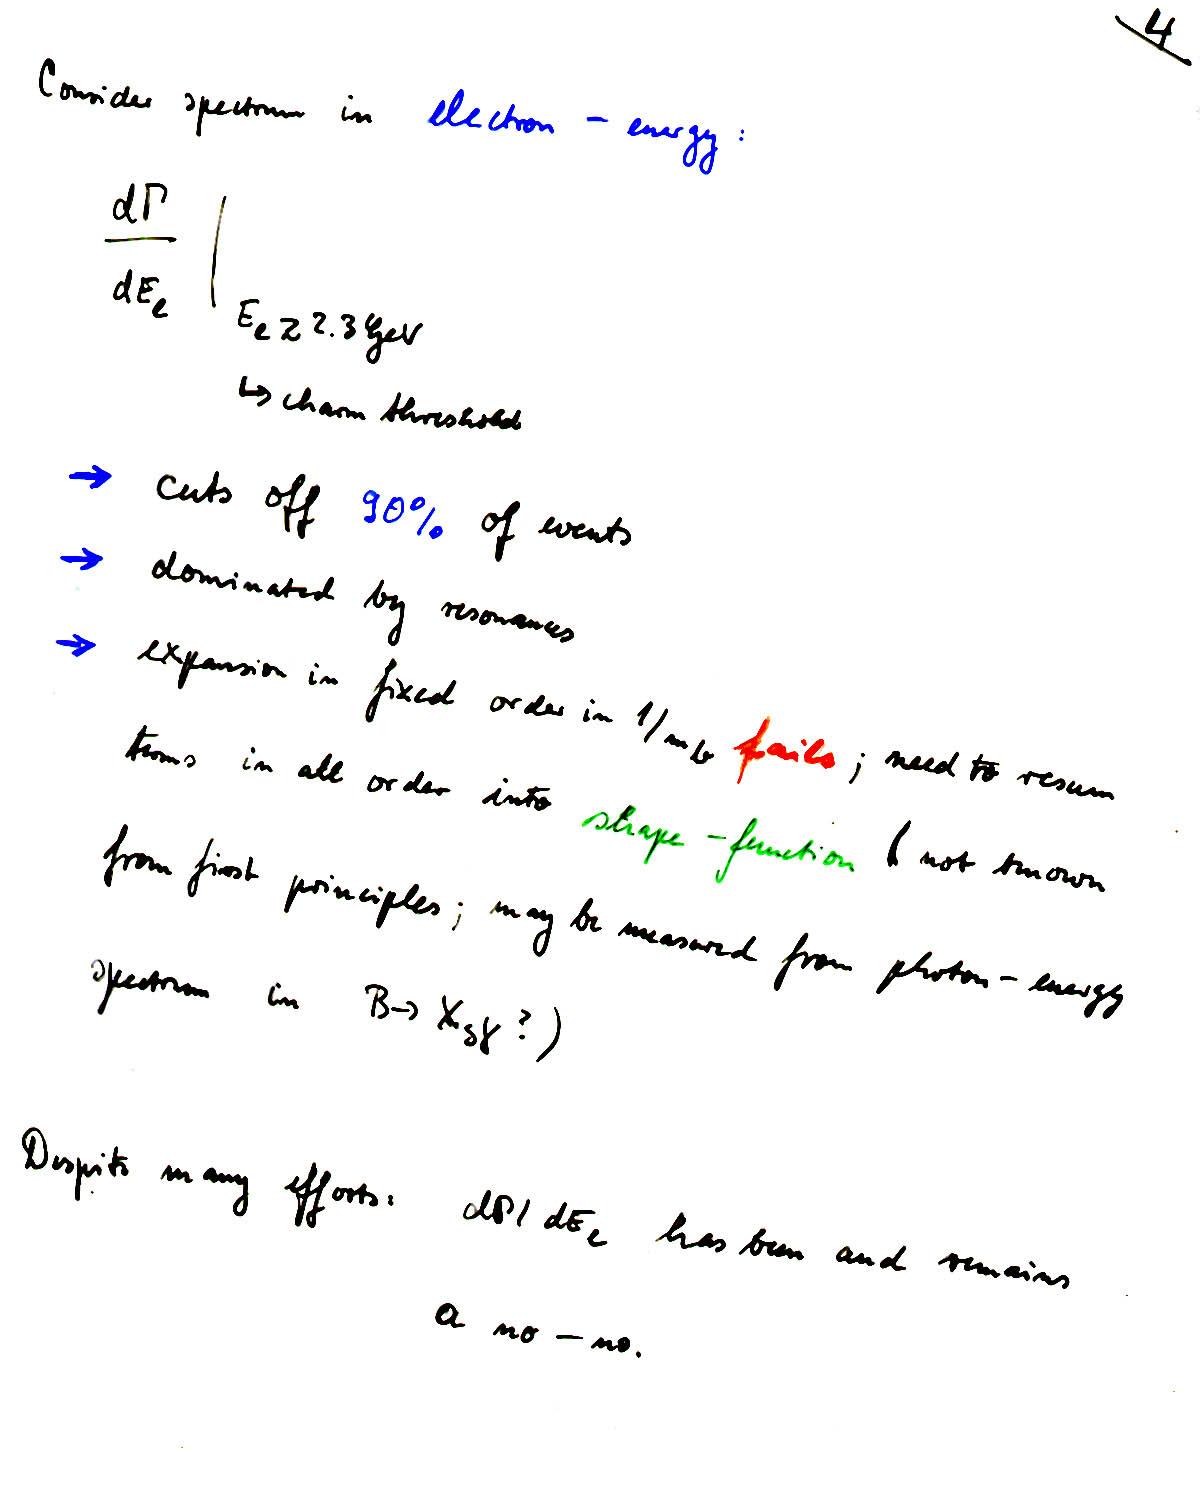 4
Consider spectrum in electron – energy:
dΓ
dEe
Ee ≥ 2.3 GeV
↳ charm threshold
→ cuts off 90% of events
→ dominated by resonances
→ expansion in fixed order in 1/mb fails; need to resum
terms in all order into shape – function ( not known
from first principles; may be measured from photon – energy
spectrum in B→ Xsγ ?)
Despite many efforts: dΓ/dEe has been and remains
a no – no.